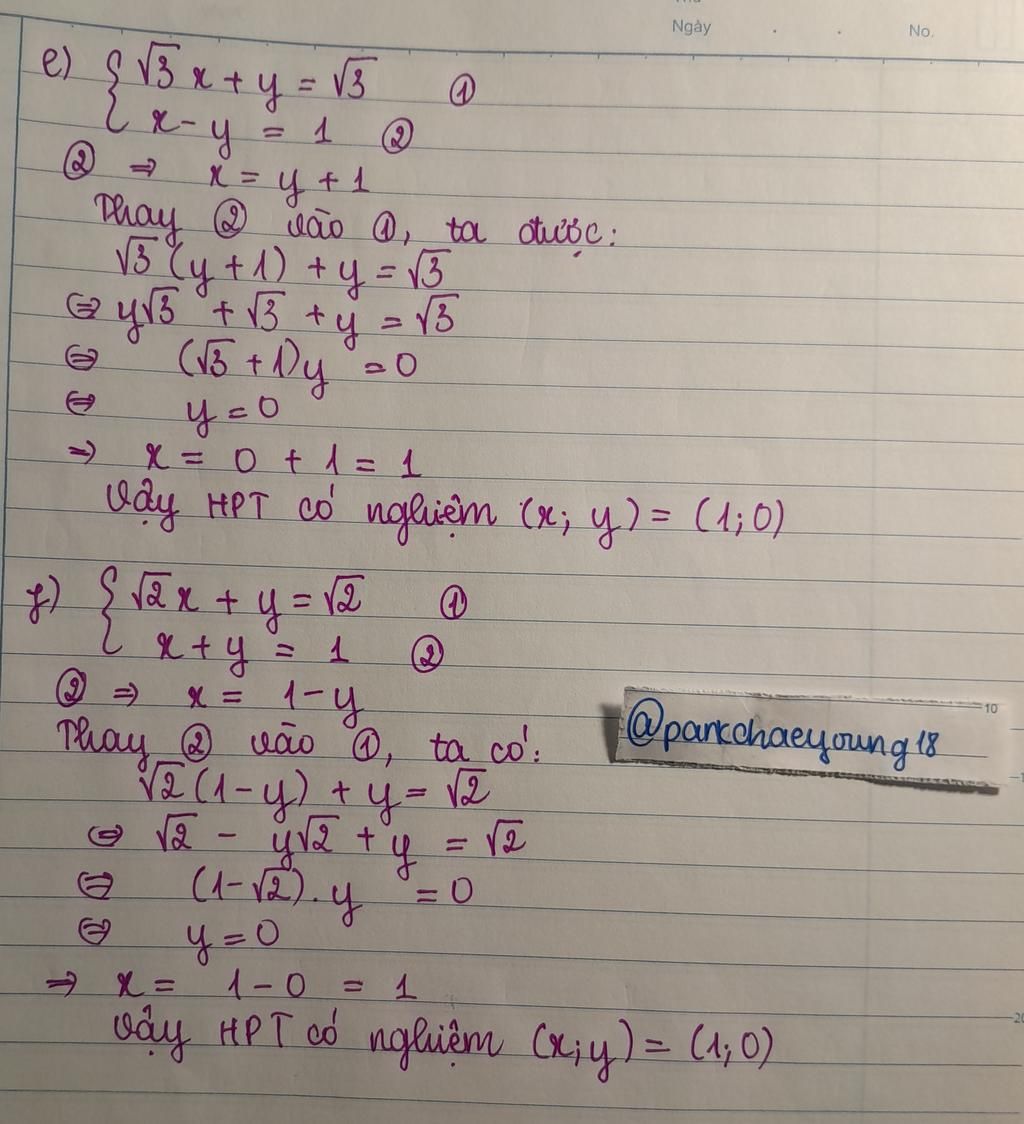 Ngày . . No.
e) { √3 x + y = √3 ①
x - y = 1 ②
② ⇒ x = y + 1
Thay ② vào ①, ta được:
√3 (y + 1) + y = √3
⇔ y√3 + √3 + y = √3
⇔ (√3 + 1)y = 0
⇔ y = 0
⇒ x = 0 + 1 = 1
Vậy HPT có nghiệm (x; y) = (1; 0)
f) { √2 x + y = √2 ①
x + y = 1 ②
② ⇒ x = 1 - y
10
@parkchaeyoung18
Thay ② vào ①, ta có:
√2 (1 - y) + y = √2
⇔ √2 - y√2 + y = √2
⇔ (1 - √2) . y = 0
⇔ y = 0
⇒ x = 1 - 0 = 1
Vậy HPT có nghiệm (x; y) = (1; 0)